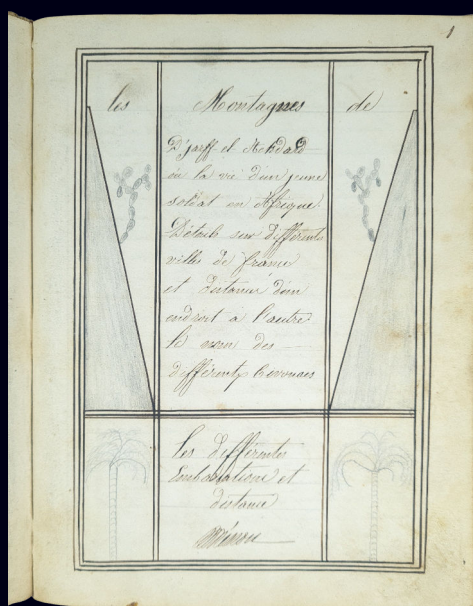 1
les Montagnes de
D'jarff el
ou la vie d'un jeune
soldat en Afrique
Détails sur différents
villes de france
et distance d'un
endroit à l'autre
le nom des
différents bivouacs
les différentes
et
distance